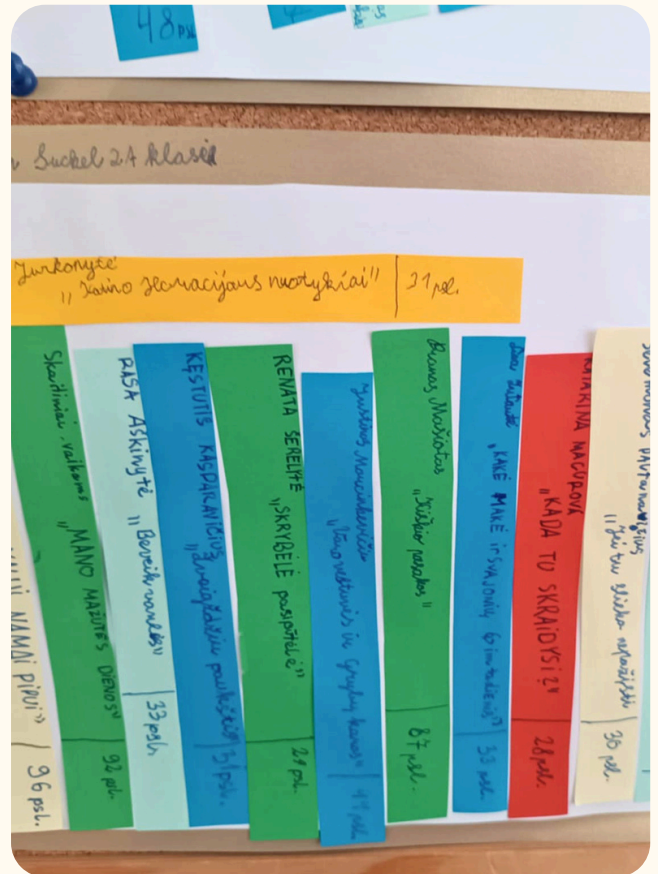 48 psl.
Suckel 2A klasė
Jurkonytė
„ nuotykiai" 31 psl.
NAMAI PIPUI" 96 psl.
Skaitiniai vaikams „MANO MAŽUTĖS DIENOS" 92 psl.
RASA AŠKINYTĖ „Beveik varlėsu 33 psl.
KĘSTUTIS KASPARAVIČIUS „Žvaigždžių paukštis" 31 psl.
RENATA ŠERELYTĖ „SKRYBĖLĖ pasipūtėlė" 29 psl.
Justinas Marcinkevičius „Voro vestuvės ir Grybų karas"
Pranas Mašiotas „Kiškio pasakos" 87 psl.
Lina Žutautė „KAKĖ MAKĖ ir SVAJONIŲ 33 psl.
KATARINA MACUROVÁ „KADA TU SKRAIDYSI?" 28 psl.
„Jei tu slieko nepažįsti 30 psl.